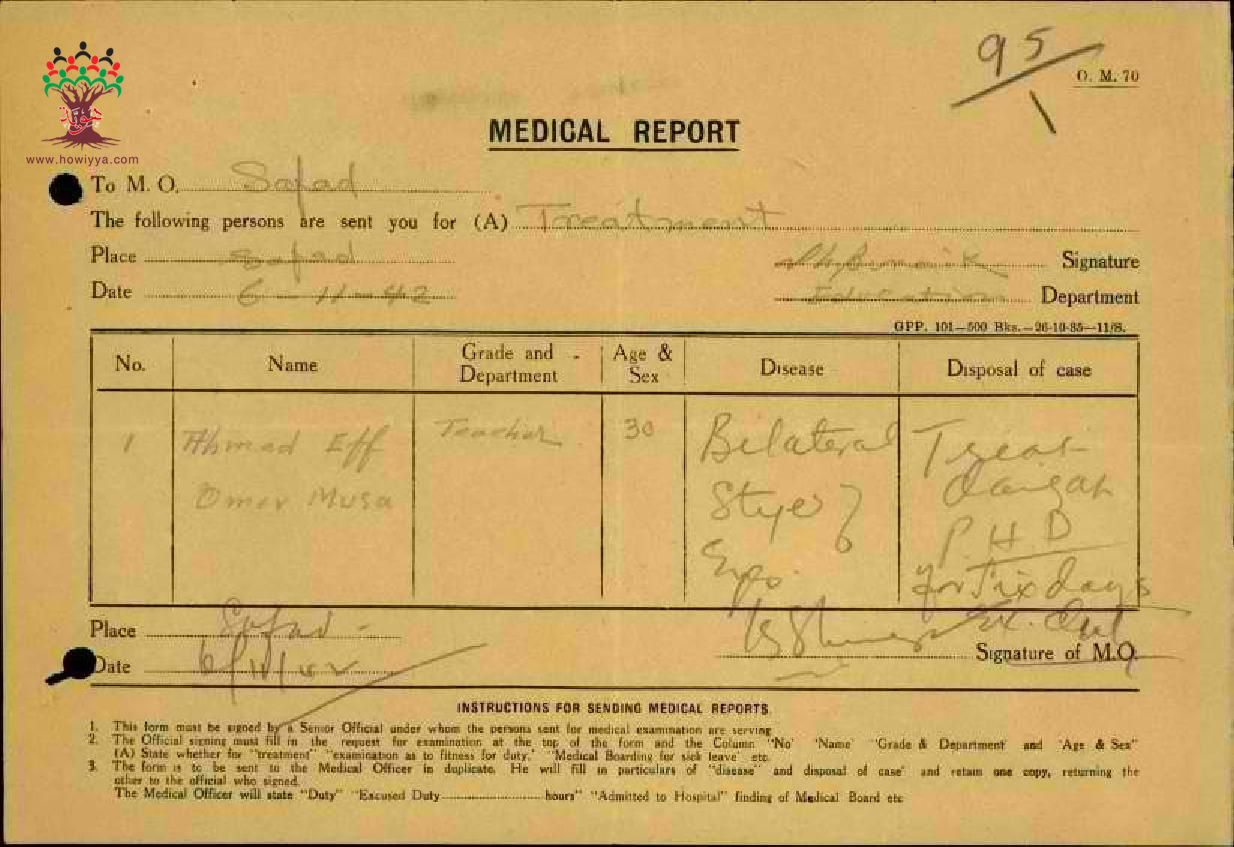 95
1
O. M. 70
MEDICAL REPORT
www.howiyya.com
To M. O. Safad
The following persons are sent you for (A) Treatment
Place Safad
Signature
Date 6-11-42
Education Department
GPP. 101—500 Bks.—26-10-35—11/S.
No. Name Grade and Department Age & Sex Disease Disposal of case
1 Ahmed Eff Teacher 30 Bilateral Treat
Omar Musa Stye
P.H.D
for six days
Place Safad
Date 6/11/42
Signature of M.O.
INSTRUCTIONS FOR SENDING MEDICAL REPORTS.
1. This form must be signed by a Senior Official under whom the persons sent for medical examination are serving
2. The Official signing must fill in the request for examination at the top of the form and the Column "No" "Name" "Grade & Department" and "Age & Sex"
(A) State whether for "treatment" "examination as to fitness for duty," "Medical Boarding for sick leave" etc.
3. The form is to be sent to the Medical Officer in duplicate. He will fill in particulars of "disease" and disposal of case" and retain one copy, returning the
other to the official who signed.
The Medical Officer will state "Duty" "Excused Duty..........hours" "Admitted to Hospital" finding of Medical Board etc